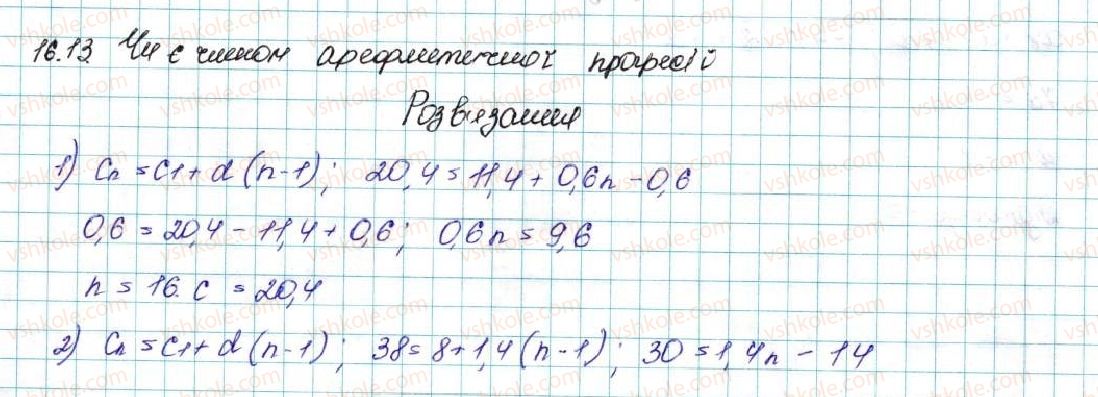 16.13 Чи є членом арефметичної прогресії
Розв'язання
1) Cn = C1 + d (n-1); 20,4 = 11,4 + 0,6n - 0,6
0,6 = 20,4 - 11,4 + 0,6; 0,6n = 9,6
n = 16. c = 20,4
2) Cn = C1 + d (n-1); 38 = 8 + 1,4 (n-1); 30 = 1,4n - 14